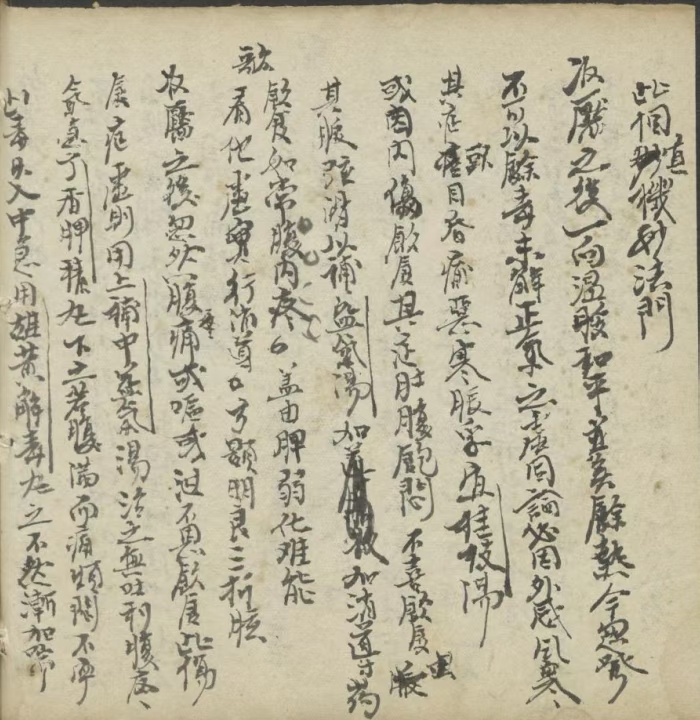 此個真機妙法門
収靨之後一向温脮和平並無餘熱今忽發
不可以餘毒未解正氣之虛同論必因外感風寒
其症頭疼目昏痛惡寒脹浮宜桂枝湯
或因内傷飲食其症肚腹飽悶不喜飲食
其脈弦滑以補益氣湯加加消導葯
飲食如常腹内疼盖由脾弱化难能
歌看他虛實行消導方顯明良三折肱
収靨之後忽然腹痛或嘔或泄不思飲食此傷
食症虛則用上補中益氣湯治之無吐利腹疼
氣急丁香脾積丸下之若腹滿而痛煩悶不寧
此毒氣入中急用雄黄解毒丸之不然漸加